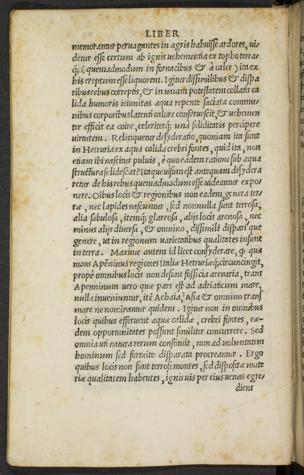 LIBER
memorantur peruagantes in agris habuisse ardores, ui-
detur esse certum ab ignis uehementia ex topho terra-
q;, quemadmodum in fornacibus & à calce, ita ex
his ereptum esse liquorem. Igitur dissimilibus & dispa
ribus rebus correptis, & in unam potestatem collatis ca
lida humoris ieiunitas aqua repente saciata commu-
nibus corporibus latenti calore conferuescit, & uehemen
ter efficit ea coire, celeriterq; una soliditatis percipere
uirtutem. Relinquetur desyderatio, quoniam ita sunt
in Hetruria ex aqua calida crebri fontes, quid ita, non
etiam ibi nascitur puluis, è quo eadem ratione sub aqua
structura solidescat? Itaque uisum est antequam desydera
retur de his rebus quemadmodum esse uideantur expo-
nere. Oibus locis & regionibus non eadem genera ter-
ræ, nec lapides nascuntur, sed nonnulla sunt terrosa,
alia sabulosa, itemq; glareosa, alijs locis arenosa, nec
minus alijs diuersa, & omnino, dissimili disparique
genere, ut in regionum uarietatibus qualitates insunt
in terra. Maxime autem id licet considerare, q qua
mons Apeninus regiones Italiæ Hetruriæq; circuncingit,
prope omnibus locis non desunt fossicia arenaria, trans
Apenninum uero quæ pars est ad adriaticum mare,
nulla inueniuntur, itē Achaia, Asia & omnino trans
mare ne nominantur quidem. Igitur non in omnibus
locis quibus efferuent aquæ calidæ, crebri fontes, eæ-
dem opportunitates possunt similiter concurrere. Sed
omnia uti natura rerum constituit, non ad uoluntatem
hominum sed fortuito disparata procreantur. Ergo
quibus locis non sunt terrosi montes, sed dispositæ mate
riæ qualitatem habentes, ignis uis per eius uenas egre-
diens